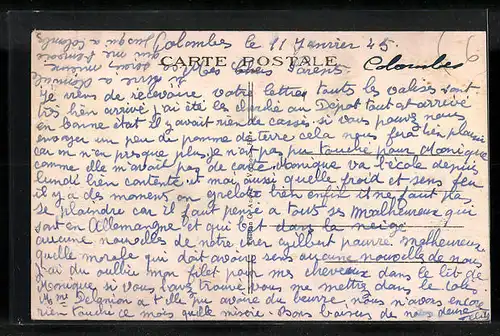 Colombes le 11 Janvier 45.
CARTE POSTALE
Colombes
Mes Chers Parents.
Je viens de recevoire votre lettre, touts les valises sont
très bien arrivé j'ai été les cherché au Dépot tout est arrivé
en bonne état il y avait rien de cassé, si vous pouvez nous
envoyer un peu de pomme de terre cela nous fera bien plaisir
car on n'en presque plus, Je n'ait pas pu touché pour Monique
comme elle m'avait pas de carte. Monique va l'école depuis
lundi bien contente, et moi aussi quelle froid et sens feu
il y a des moment on grelotte bien enfin il ne faut pas
se plaindre car il faut pensé a tout ses Malheureux qui
sont en Allemagne et qui sont dans la neige
aucune nouvelles de notre cher Gilbert pauvre Malheureux
quelle morale qui doit avoir sens aucune nouvelle de nous
j'ai du oublié mon filet pour mes cheveux dans le lit de
Monique si vous l'avez trouvé vous me mettrez dans le colis
Mme Delgnion a t elle pu avoire du beurre, nous n'avons encore
rien touché ce mois quelle misère. Bons baisers de nous deux